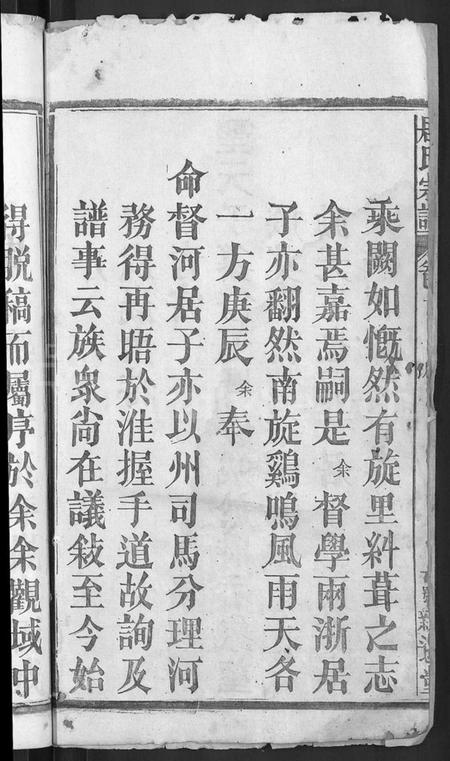 居氏宗譜
乘闕如慨然有旋里糾葺之志
余甚嘉焉嗣是余督學兩浙居
子亦翻然南旋鷄鳴風雨天各
一方庚辰余奉
命督河居子亦以州司馬分理河
務得再晤於淮握手道故詢及
譜事云族衆尙在議敍至今始
得脱稿而屬序於余余觀域中